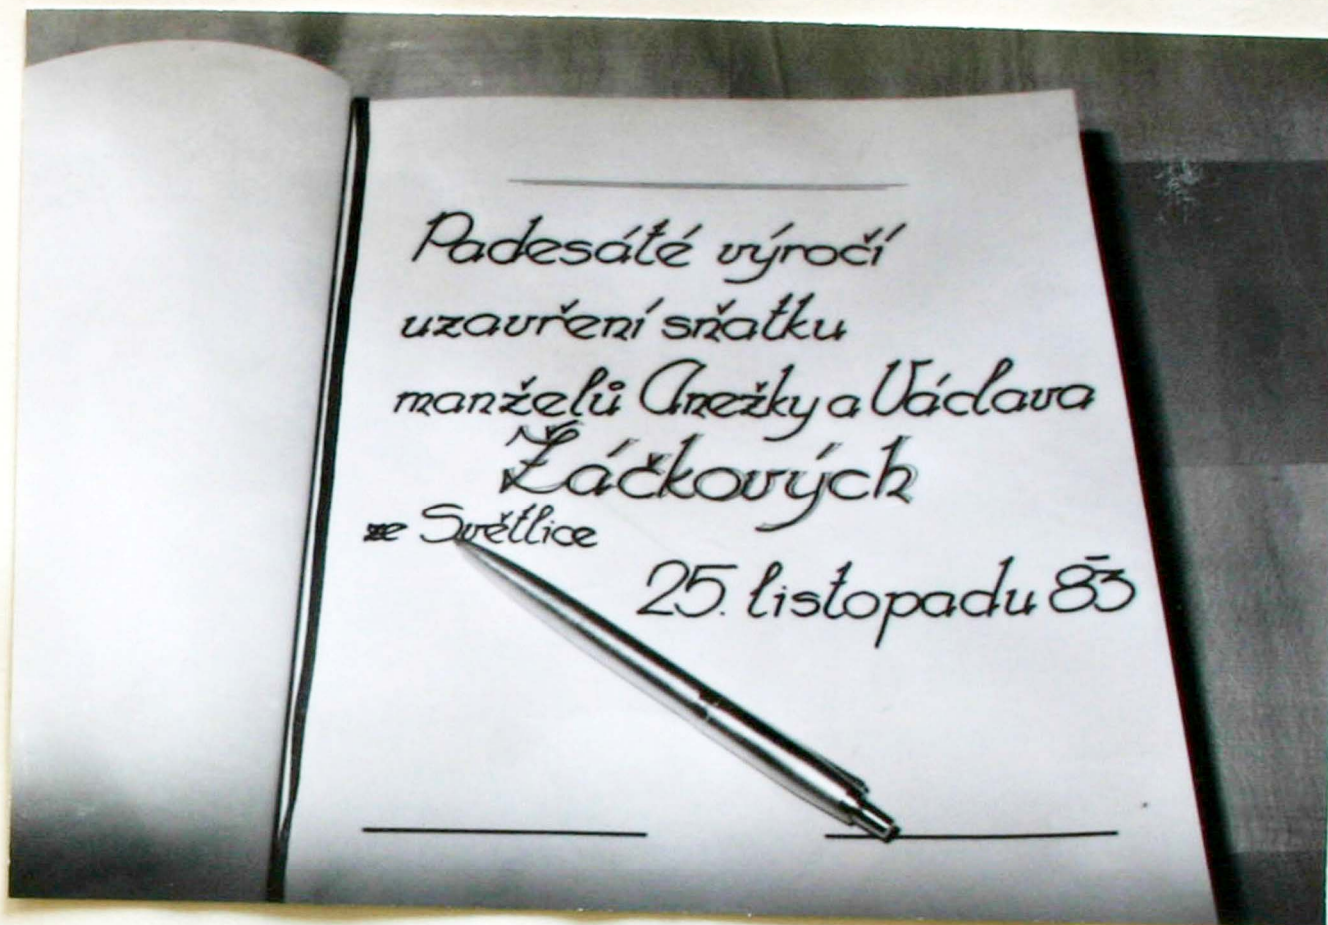 Padesáté výročí
uzavření sňatku
manželů Anežky a Václava
Žáčkových
ze Světlice
25. listopadu 83